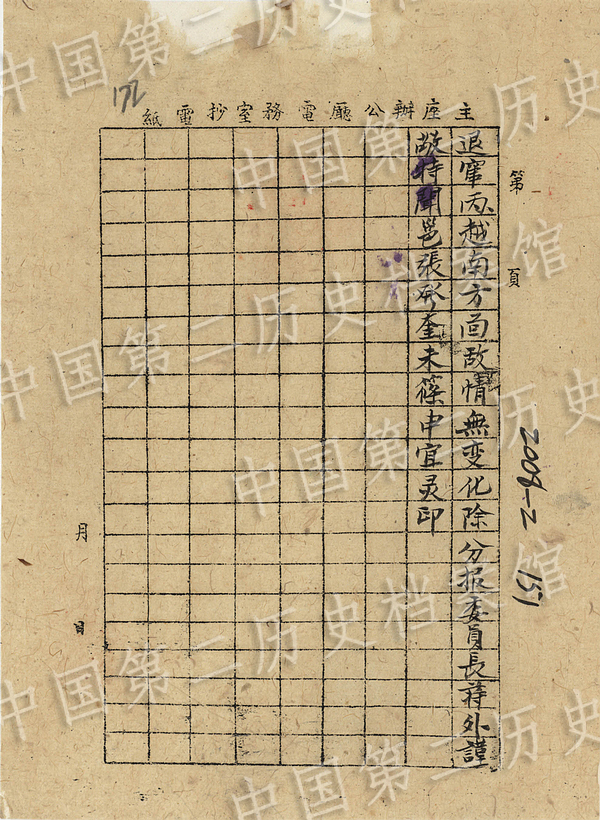 主座辦公廳電務室抄電紙
第 頁
退窜丙越南方面敌情無变化除分报委員長蒋外謹
敬特聞邕張發奎未篠申宜灵印
月 日
2008-2 151
172
中国第二历史档案馆